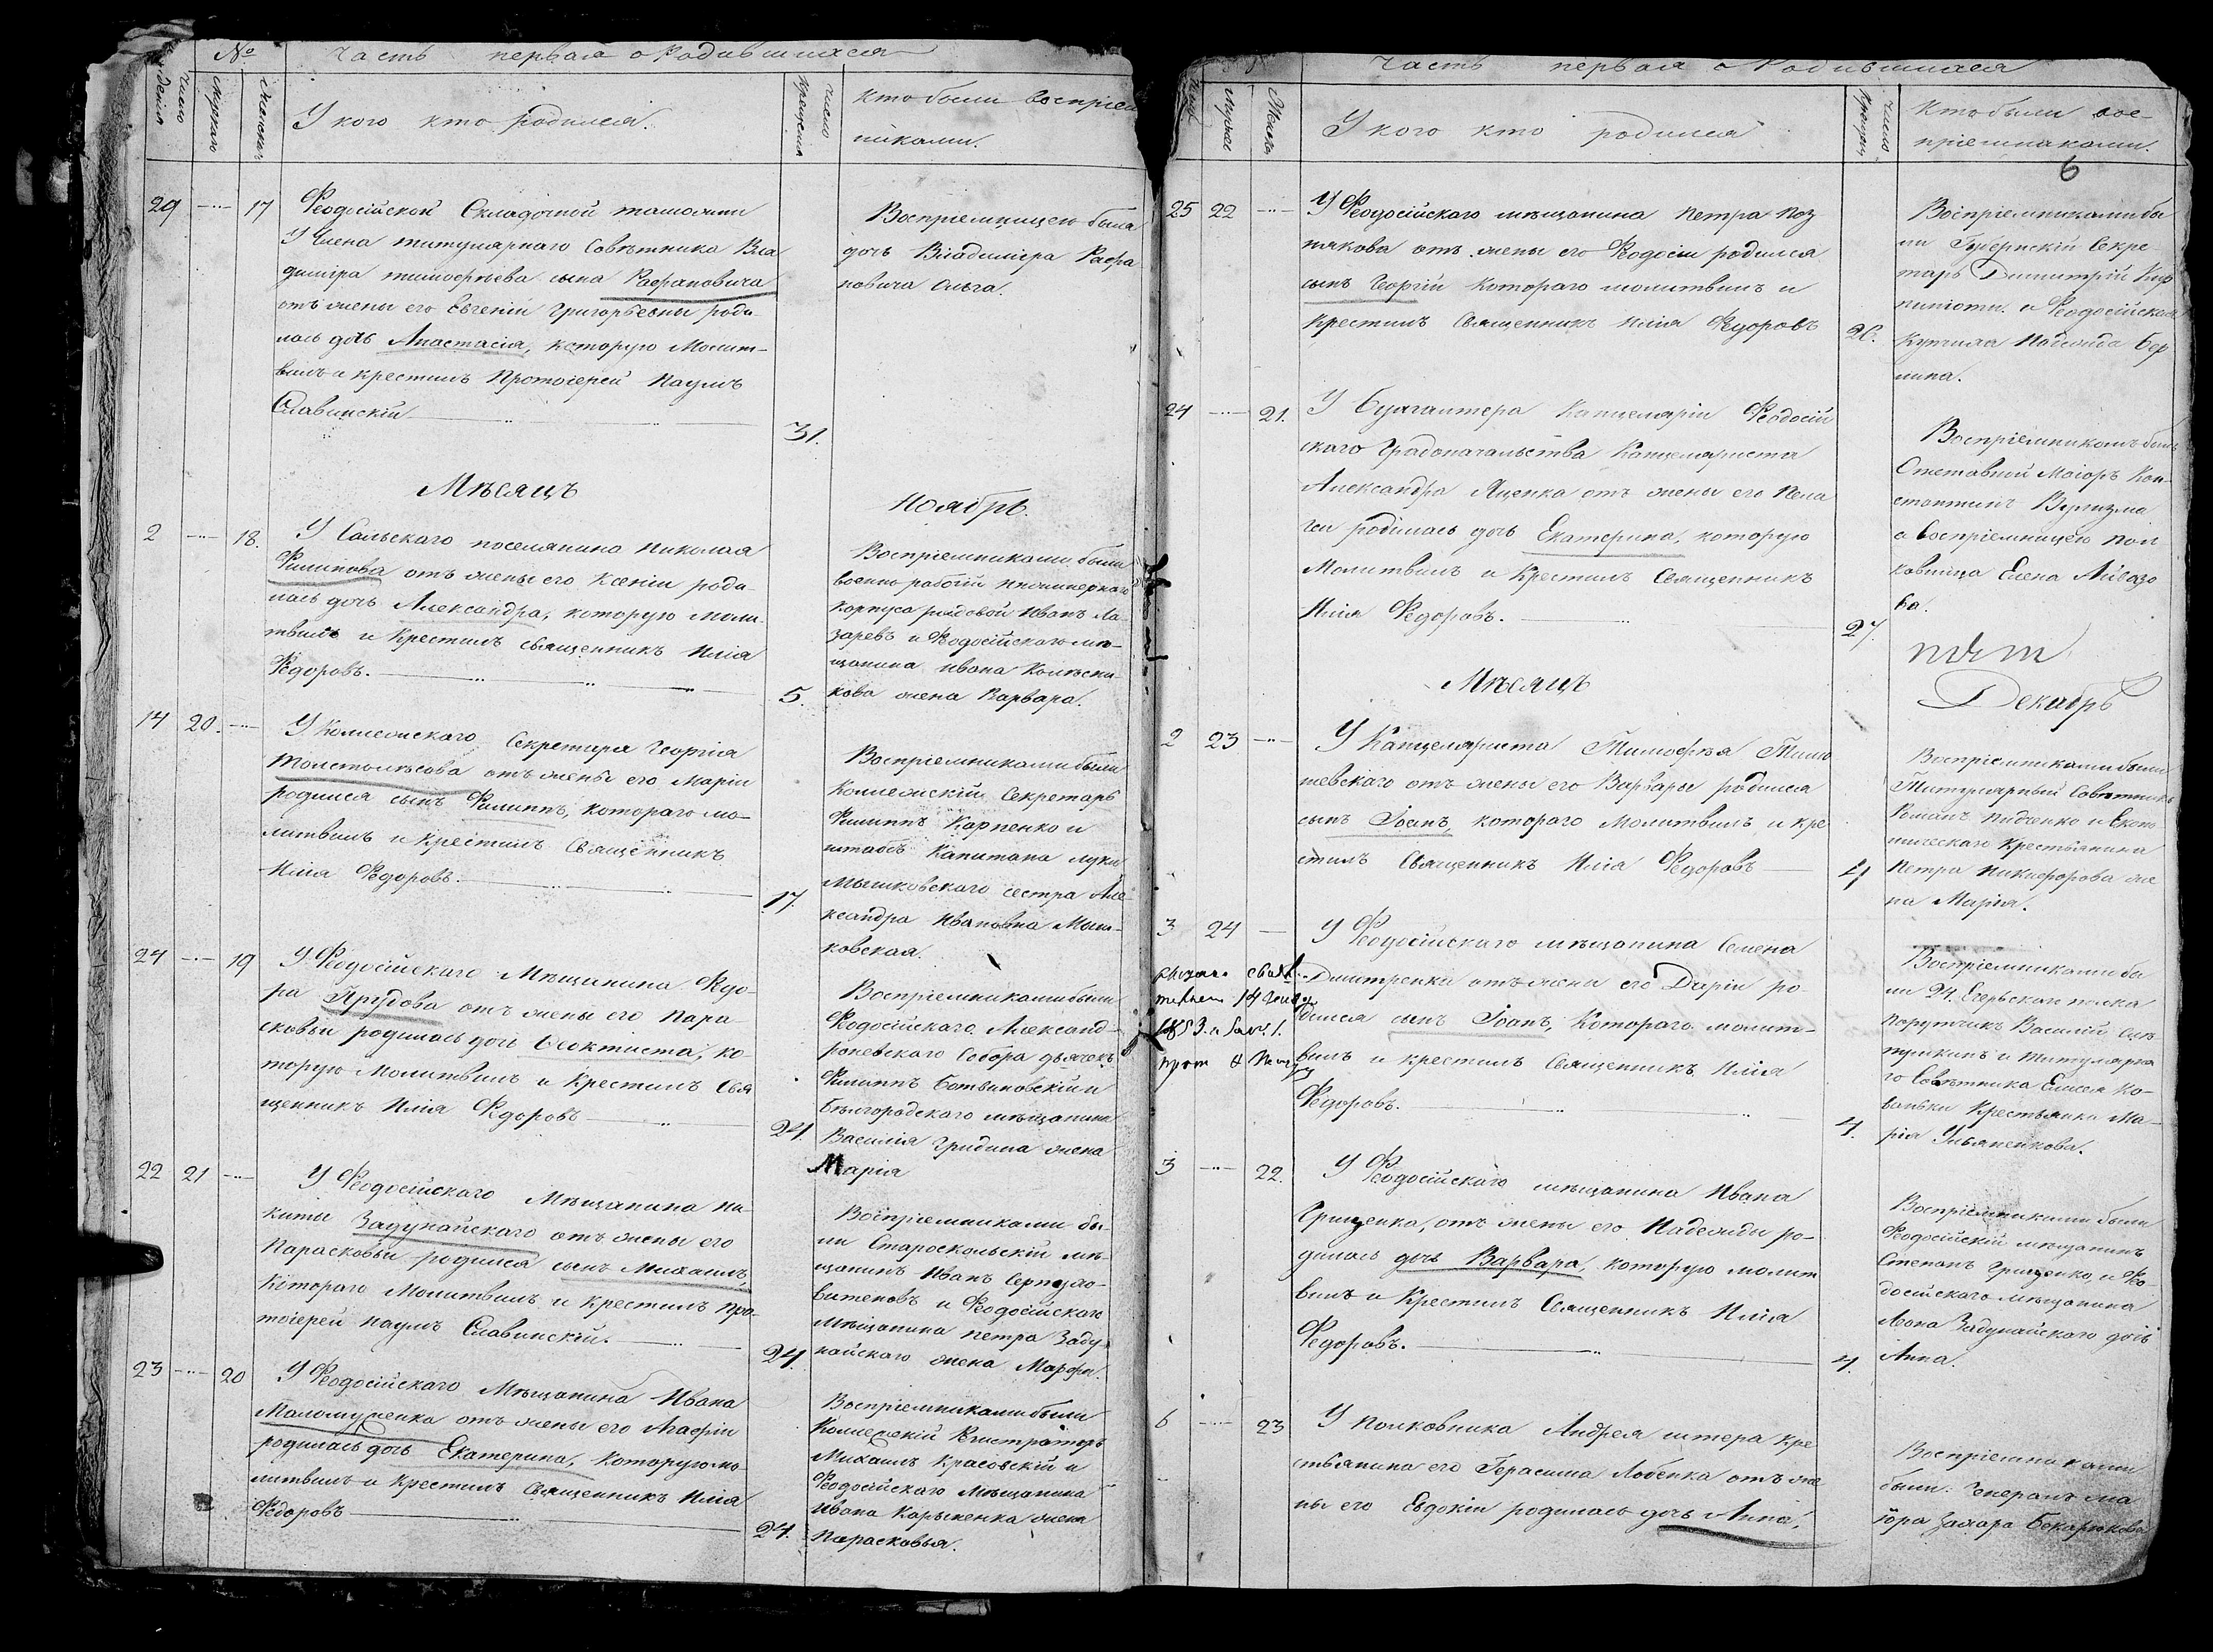 № Часть первая о Родившихся
Число рождения
Мужеска
Женска
У кого кто родился.
Число крещения
Кто были восприем
никами.
29 17 Феодосійской Складочной таможни
У Члена титулярнаго Совѣтника Вла
диміра тимофѣева сына Рафановича
отъ жены его Евгеніи Григорьевны роди
лась дочь Анастасія, которую Молит-
вилъ и крестилъ Протоіерей Наумъ
Славинскій
31.
Воспріемницею была
дочь Владиміра Рафа
новича Ольга.
Мѣсяцъ Ноябрь.
2 18. У Сальскаго поселянина Николая
Филипова отъ жены его Ксеніи роди
лась дочь Александра, которую моли
твилъ и Крестилъ священникъ Илія
Федоровъ.
5.
Воспріемниками были
военно рабочій инженернаго
корпуса рядовой Иванъ Ла
заревъ и Феодосійскаго мѣ-
щанина Ивана Колѣсни
кова жена Варвара.
14 20. У Колежскаго Секретаря Георгія
Толстолѣсова отъ жены его Маріи
родился сынъ Филиппъ, котораго мо-
литвилъ и Крестилъ Священникъ
Илія Федоровъ.
17.
Воспріемниками были
Колежскій Секретарь
Филиппъ Карпенко и
штабсъ Капитана луки
Мышковскаго сестра Але-
ксандра Ивановна Мыш-
ковская.
24 19 У Феодосійскаго Мѣщанина Фдо-
ра Прудова отъ жены его Пара-
сковьи родилась дочь Феоктиста, ко
торую Молитвилъ и Крестилъ Свя
щенникъ Илія Федоровъ
24.
Воспріемниками были
Феодосійскаго Александ-
роневскаго Собора дьячекъ
Филиппъ Ботвиновскій и
Бѣлгородскаго мѣщанина
Василія Гридина жена
Марія
22 21 У Феодосійскаго Мѣщанина Ни
киты Задунайскаго отъ жены его
Парасковьи родился сынъ Михаилъ,
Котораго Молитвилъ и Крестилъ про-
тоіерей Наумъ Славинскій.
24.
Воспріемниками бы-
ли Староскольскій мѣ-
щанинъ Иванъ
и Феодосійскаго
мѣщанина Петра Заду
найскаго жена Марфа.
23 20 У Феодосійскаго Мѣщанина Ивана
отъ жены его Агафіи
родилась дочь Екатерина, Которую мо-
литвилъ и Крестилъ Священникъ Илія
Федоровъ
24.
Воспріемниками были
Колежскій Регистраторъ
Михаилъ Красовскій и
Феодосійскаго Мѣщанина
Ивана жена
Парасковья.
Часть первая о Родившихся
Мужеска
Женска
У кого кто родился
Число
Кто были вос-
пріемниками.
6
25 22 У Феодосійскаго мѣщанина Петра Поз
някова отъ жены его Феодосіи родился
сынъ Георгій Котораго молитвилъ и
Крестилъ Священникъ Илія Федоровъ
26.
Воспріемниками бы
ли Губернскій Секре
тарь Димитрій
и Феодосійская
Купчиха Надежда Бер
лина.
24 21. У Бухгалтера Канцеляріи Феодосій
скаго Градоначальства Канцеляриста
Александра Яценка отъ жены его Пела
геи родилась дочь Екатерина, которую
Молитвилъ и Крестилъ Священникъ
Илія Федоровъ.
27.
Воспріемникомъ былъ
Отставной Маіоръ Кон-
стантинъ
а воспріемницею Пол
ковница Елена Айвазо
ва.
Мѣсяцъ Декабрь
2 23 У Канцеляриста Тимофѣя Тим
шевскаго отъ жены его Варвары родился
сынъ Іоанъ, котораго Молитвилъ и кре
стилъ Священникъ Илія Федоровъ
4
Воспріемниками были
Титулярный Совѣтникъ
Романъ и Эконо
мическаго Крестьянина
Петра Никифорова же
на Марія.
3 24 У Феодосійскаго мѣщанина Семена
Дмитренка отъ жены его Даріи ро-
дился сынъ Іоанъ, Котораго молит-
вилъ и крестилъ Священникъ Илія
Федоровъ.
1853.
4.
Воспріемниками бы
ли 24. Егерьскаго полка
Порутчикъ Василій
и титулярна
го Совѣтника Елисея Ко-
ваньки Крестьянка Ма-
рія Ульяненкова.
3 22. У Феодосійскаго мѣщанина Ивана
Гриценка, отъ жены его Надежды ро-
дилась дочь Варвара, которую молит
вилъ и Крестилъ Священникъ Илія
Федоровъ.
4.
Воспріемниками были
Феодосійскій мѣщанинъ
Степанъ Гриценко и Фео
досійскаго мѣщанина
Леона Задунайскаго дочь
Анна.
6 23 У Полковника Андрея штера кре
стьянина его Герасима Лобенка отъ же
ны его Евдокіи родилась дочь Анна,
Воспріемниками
были. Генералъ ма
іора Захара Бекарюкова